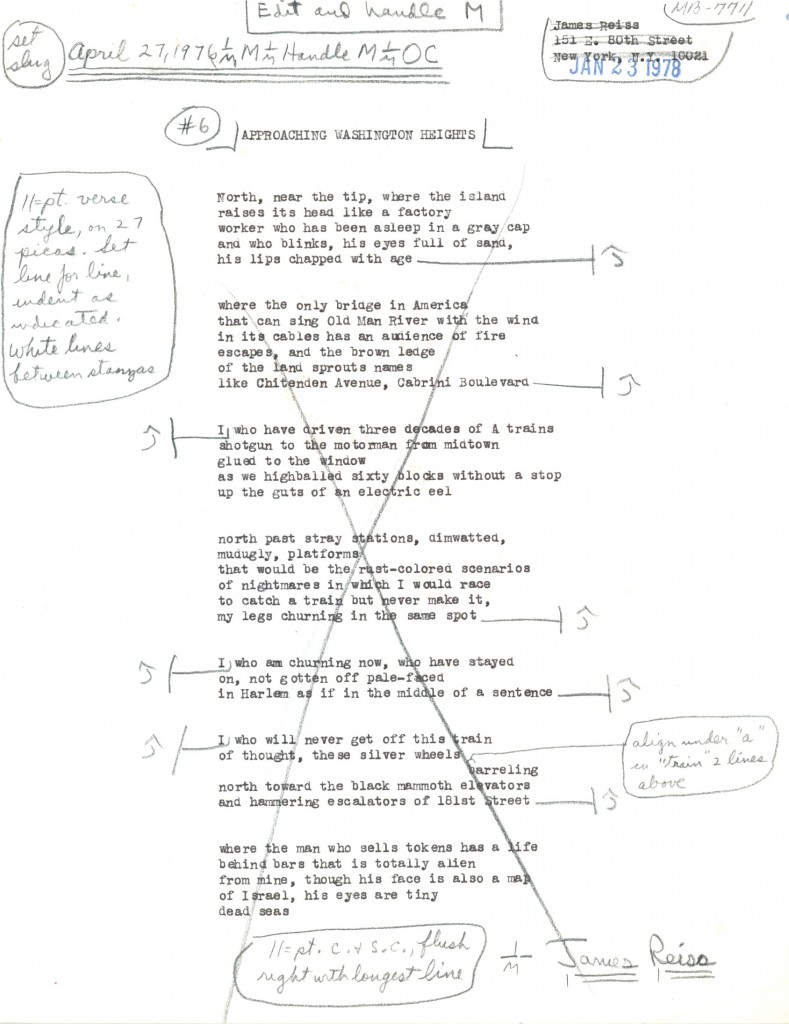 Edit and handle M
MB-7711
set
slug
April 27, 1976 1/M M 1/M Handle M 1/M OC
James Reiss
151 E. 80th Street
New York, N.Y. 10021
JAN 23 1978
#6
APPROACHING WASHINGTON HEIGHTS
11=pt. verse
style, on 27
picas. Set
line for line,
indent as
indicated.
White lines
between stanzas
North, near the tip, where the island
raises its head like a factory
worker who has been asleep in a gray cap
and who blinks, his eyes full of sand,
his lips chapped with age
where the only bridge in America
that can sing Old Man River with the wind
in its cables has an audience of fire
escapes, and the brown ledge
of the land sprouts names
like Chitenden Avenue, Cabrini Boulevard
I, who have driven three decades of A trains
shotgun to the motorman from midtown
glued to the window
as we highballed sixty blocks without a stop
up the guts of an electric eel
north past stray stations, dimwatted,
mudugly, platforms
that would be the rust-colored scenarios
of nightmares in which I would race
to catch a train but never make it,
my legs churning in the same spot
I, who am churning now, who have stayed
on, not gotten off pale-faced
in Harlem as if in the middle of a sentence
I, who will never get off this train
of thought, these silver wheels
barreling
north toward the black mammoth elevators
and hammering escalators of 181st Street
align under "a"
in "train" 2 lines
above
where the man who sells tokens has a life
behind bars that is totally alien
from mine, though his face is also a map
of Israel, his eyes are tiny
dead seas
11=pt. C. & S.C., flush
right with longest line
1/M James Reiss